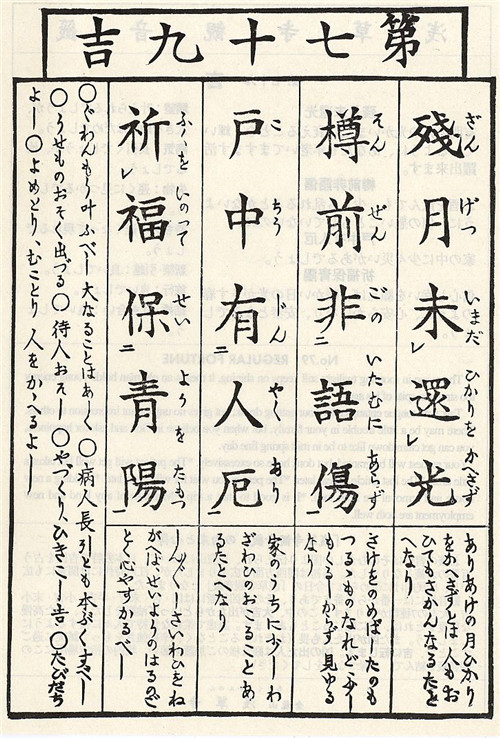 第七十九吉
殘月未還光
ざんげついまだひかりをかへさず
ありあけの月ひかり
をかへさずとは人もお
ひてもさかんなるたと
へなり
樽前非語傷
そんぜんごのいたむにあらず
さけをのめばたのも
つることなれどふし
もくるしからず見ゆる
なり
戸中有人厄
こちうじんやくあり
家のうちに少しわ
ざわひのおこるとあ
るたとへなり
祈福保青陽
ふくをいのつてせいようをたもつ
しん〲しさいわひをね
がへば、せいようのはるのご
と、心やすかるべし
〇ぐわんもう叶ふべし大なることはあし〇病人長引とも本ぷくすべし
〇うせものおそく出づる〇待人おそし〇やづくり、ひきこし吉〇たびだち
よし〇よめとり、むことり人をかゝへるよし